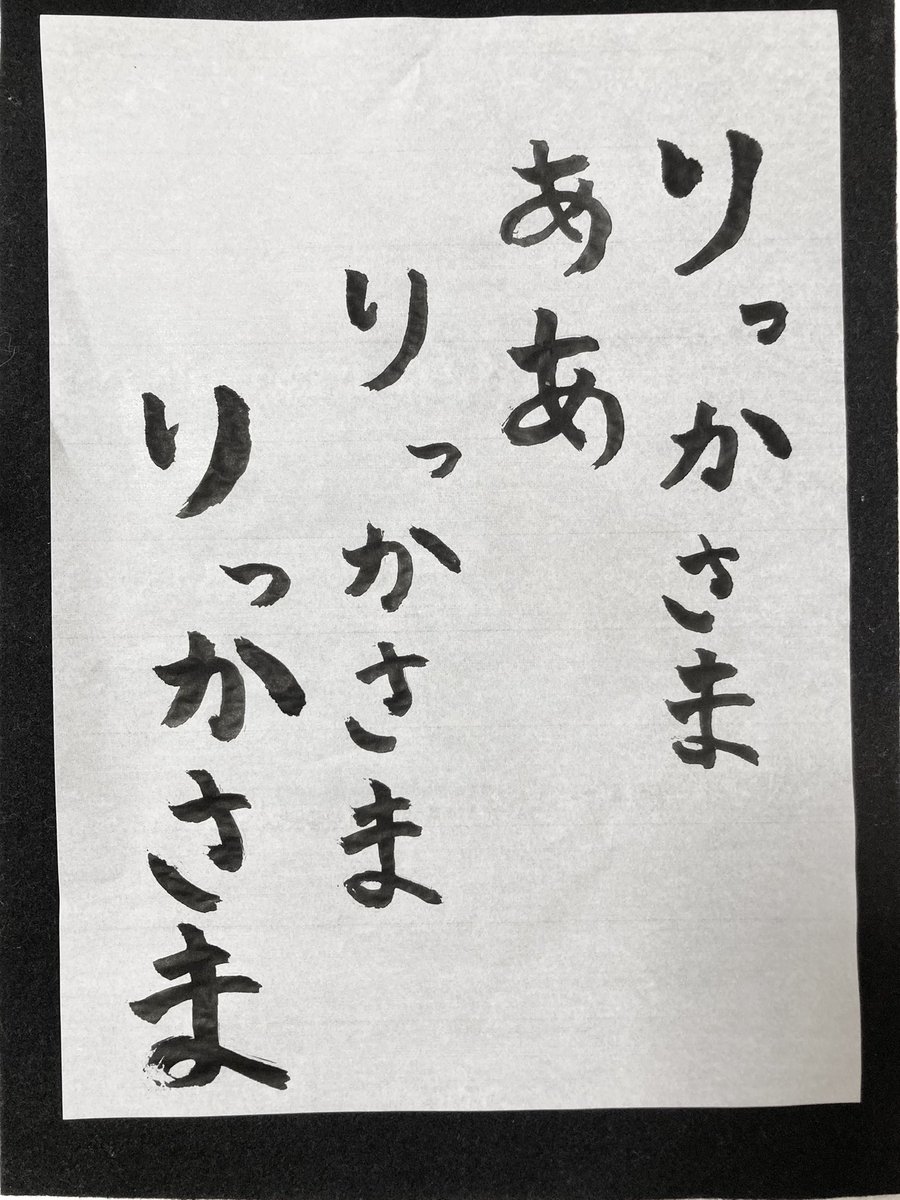 りっかさま
ああ
りっかさま
りっかさま